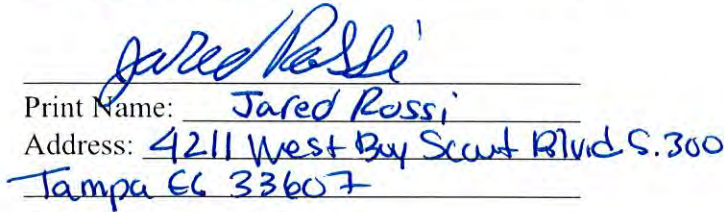 Jared Rossi
Print Name: Jared Rossi
Address: 4211 West Boy Scout Blvd S.300
Tampa FL 33607